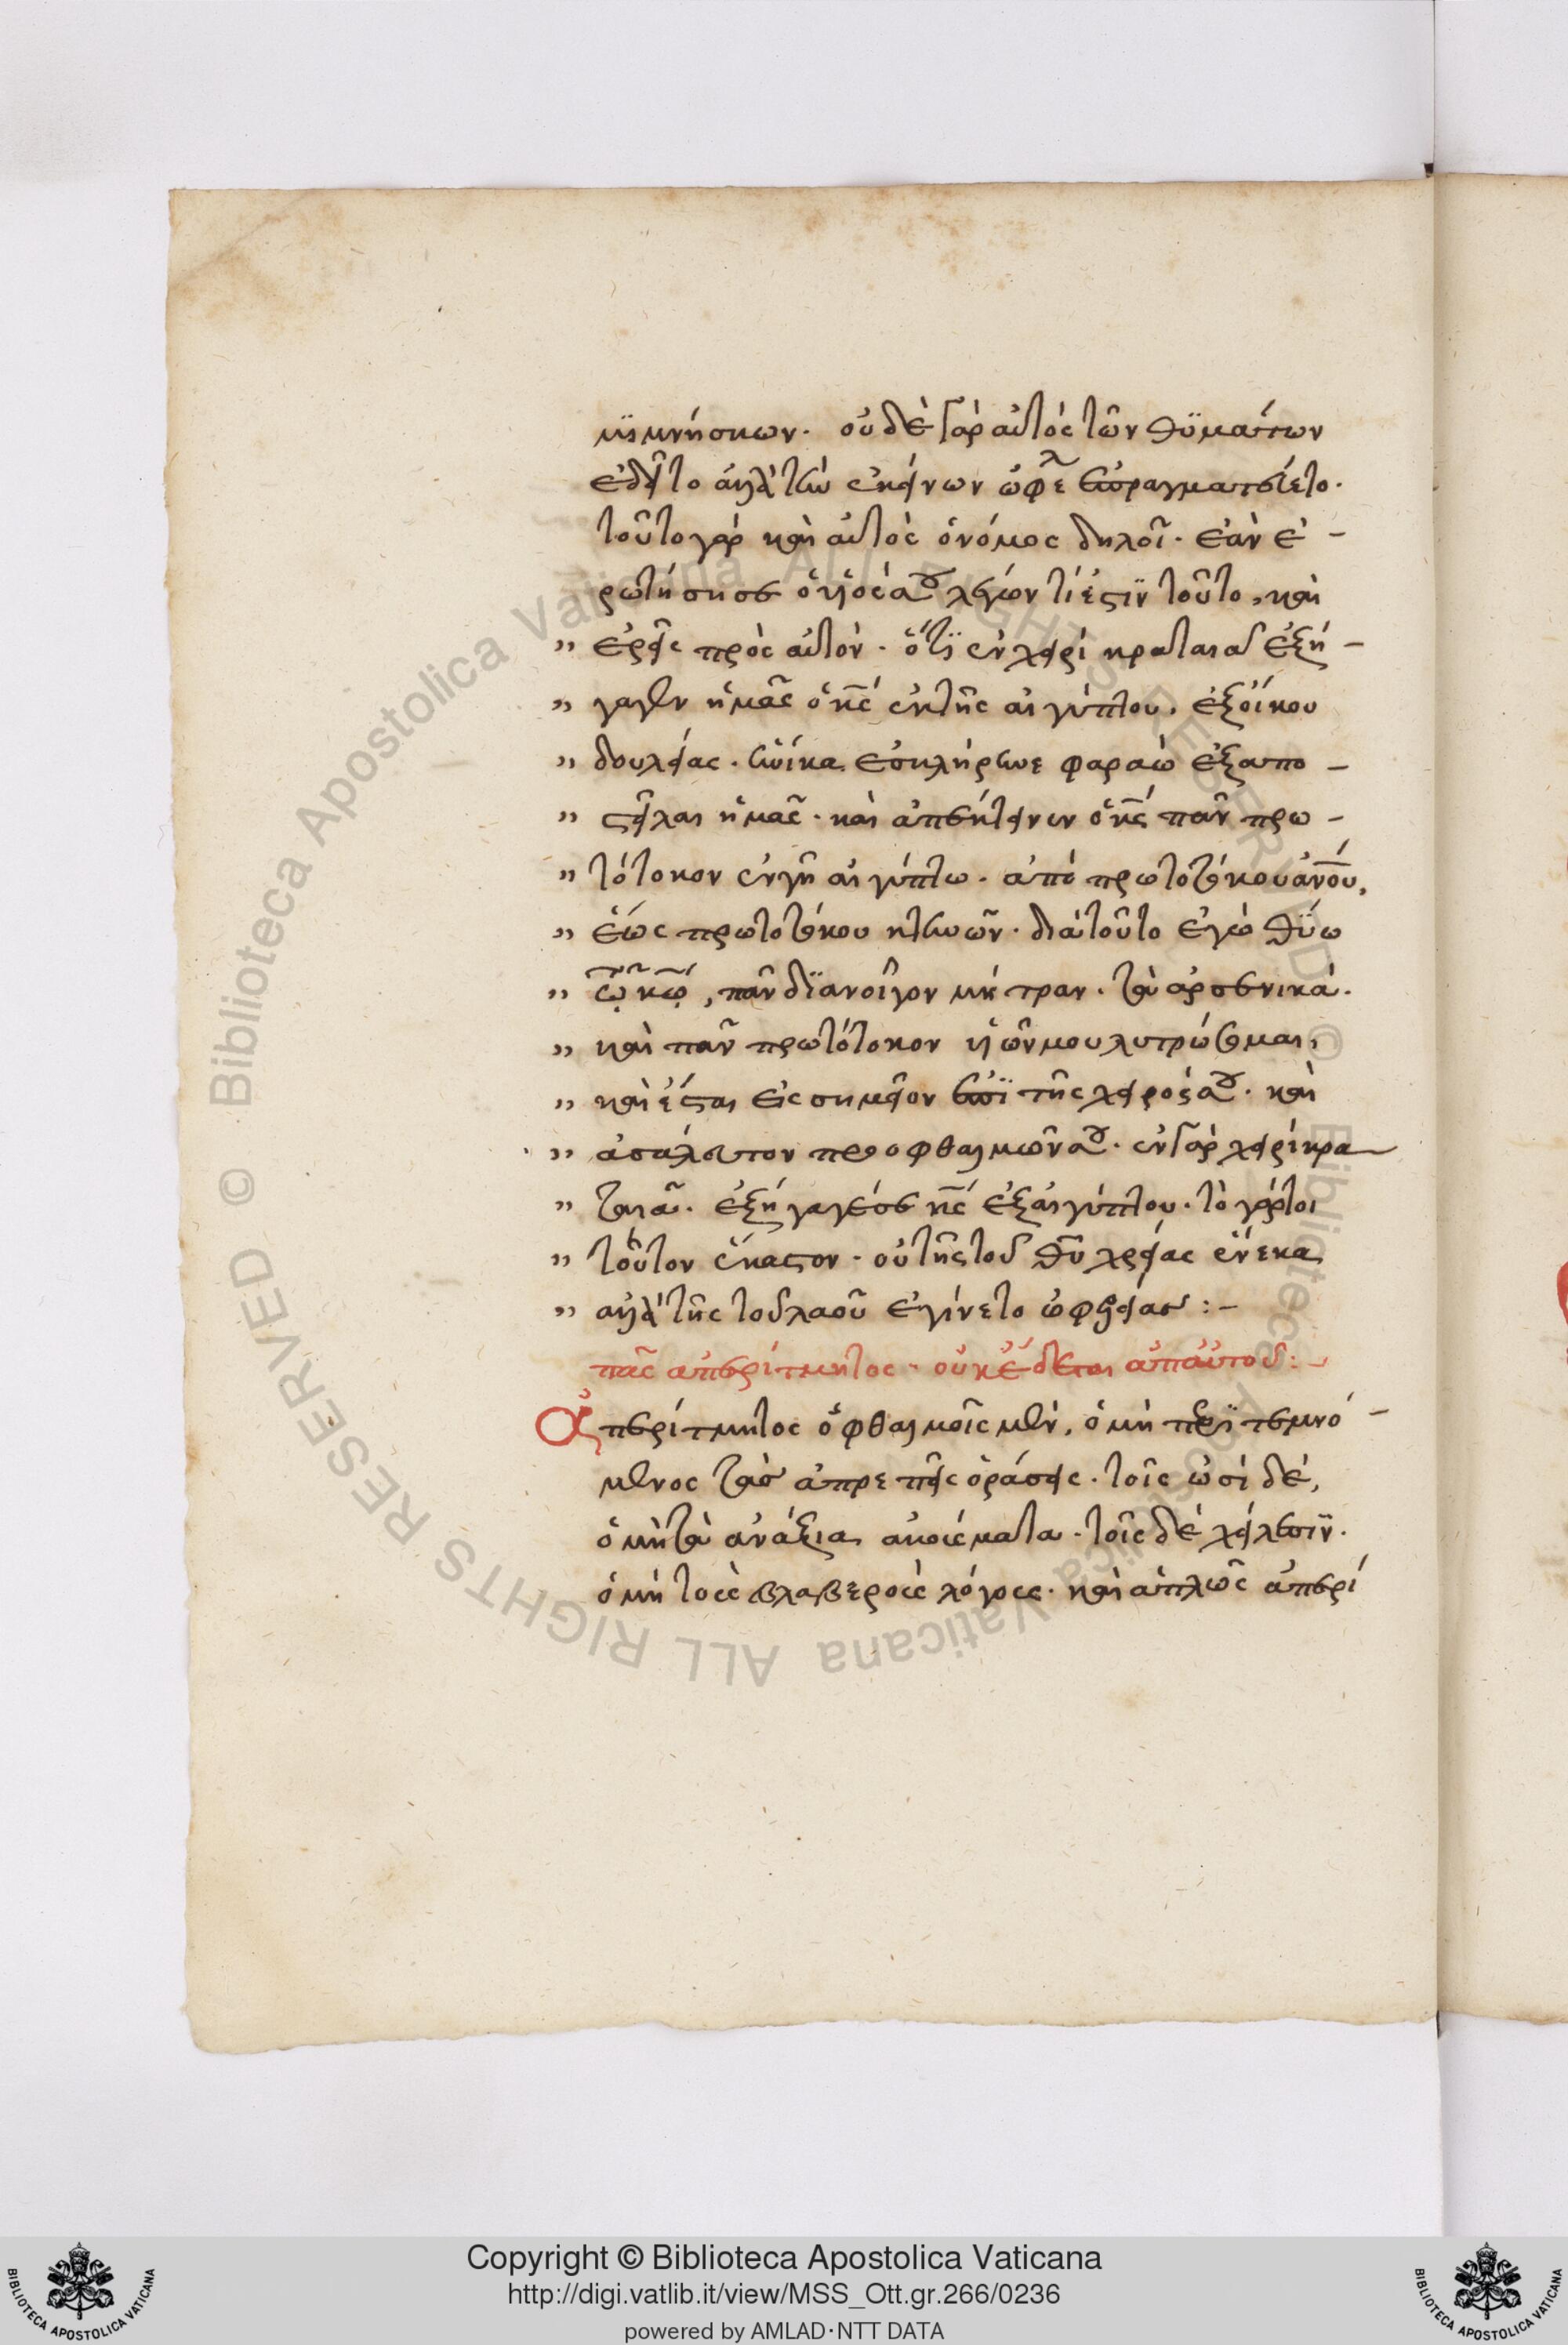 μιμνήσκων. οὐδὲ γὰρ αὐτὸς τῶν θυμάτων
ἐδεῖτο ἀλλὰ τὴν ἐκείνων ὠφέλ ἐπραγματεύετο.
τοῦτο γὰρ καὶ αὐτὸς ὁ νόμος δηλοῖ. ἐὰν ἐ-
ρωτήσῃ σε ὁ υἱός σου λέγων τί ἐστιν τοῦτο, καὶ
" ἐρεῖς πρὸς αὐτόν. ὅτι ἐν χειρὶ κραταιᾷ ἐξή-
" γαγεν ἡμᾶς ὁ κς ἐκ τῆς αἰγύπτου. ἐξ οἴκου
" δουλείας. ἡνίκα ἐσκλήρυνε φαραὼ ἐξαπο-
" στεῖλαι ἡμᾶς. καὶ ἀπέκτεινεν ὁ κς πᾶν πρω-
" τότοκον ἐν γῇ αἰγύπτω. ἀπὸ πρωτοτόκου ανου,
" ἕως πρωτοτόκου κτηνῶν. διὰ τοῦτο ἐγὼ θύω
" τῷ κῳ, πᾶν διανοῖγον μήτραν. τὰ ἀρσενικά.
" καὶ πᾶν πρωτότοκον υἱῶν μου λυτρώσομαι,
" καὶ ἔσται εἰς σημεῖον ἐπὶ τῆς χειρός σου. καὶ
" ἀσάλευτον πρὸ ὀφθαλμῶν σου. ἐν γὰρ χειρὶ κρα
" ταιᾷ. ἐξήγαγέ σε κς ἐξ αἰγύπτου. τὸ γάρ τοι
" τοῦτον ἕκαστον. οὐ τῆς τοῦ θυ χρείας ἕνεκα
" ἀλλὰ τῆς τοῦ λαοῦ ἐγίνετο ὠφελείας :-
πᾶς ἀπερίτμητος. οὐκ ἔδεται ἀπ' αὐτοῦ :-
Ἀπερίτμητος ὀφθαλμοῖς μὲν, ὁ μὴ περιτεμνό-
μενος τὰς ἀπρεπεῖς ὁράσεις. τοῖς ὠσὶ δέ,
ὁ μὴ τὰ ἀνάξια ἀκούσματα. τοῖς δὲ χείλεσιν.
ὁ μὴ τοὺς βλαβεροὺς λόγους. καὶ ἁπλῶς ἀπερί
Copyright © Biblioteca Apostolica Vaticana
http://digi.vatlib.it/view/MSS_Ott.gr.266/0236
powered by AMLAD·NTT DATA